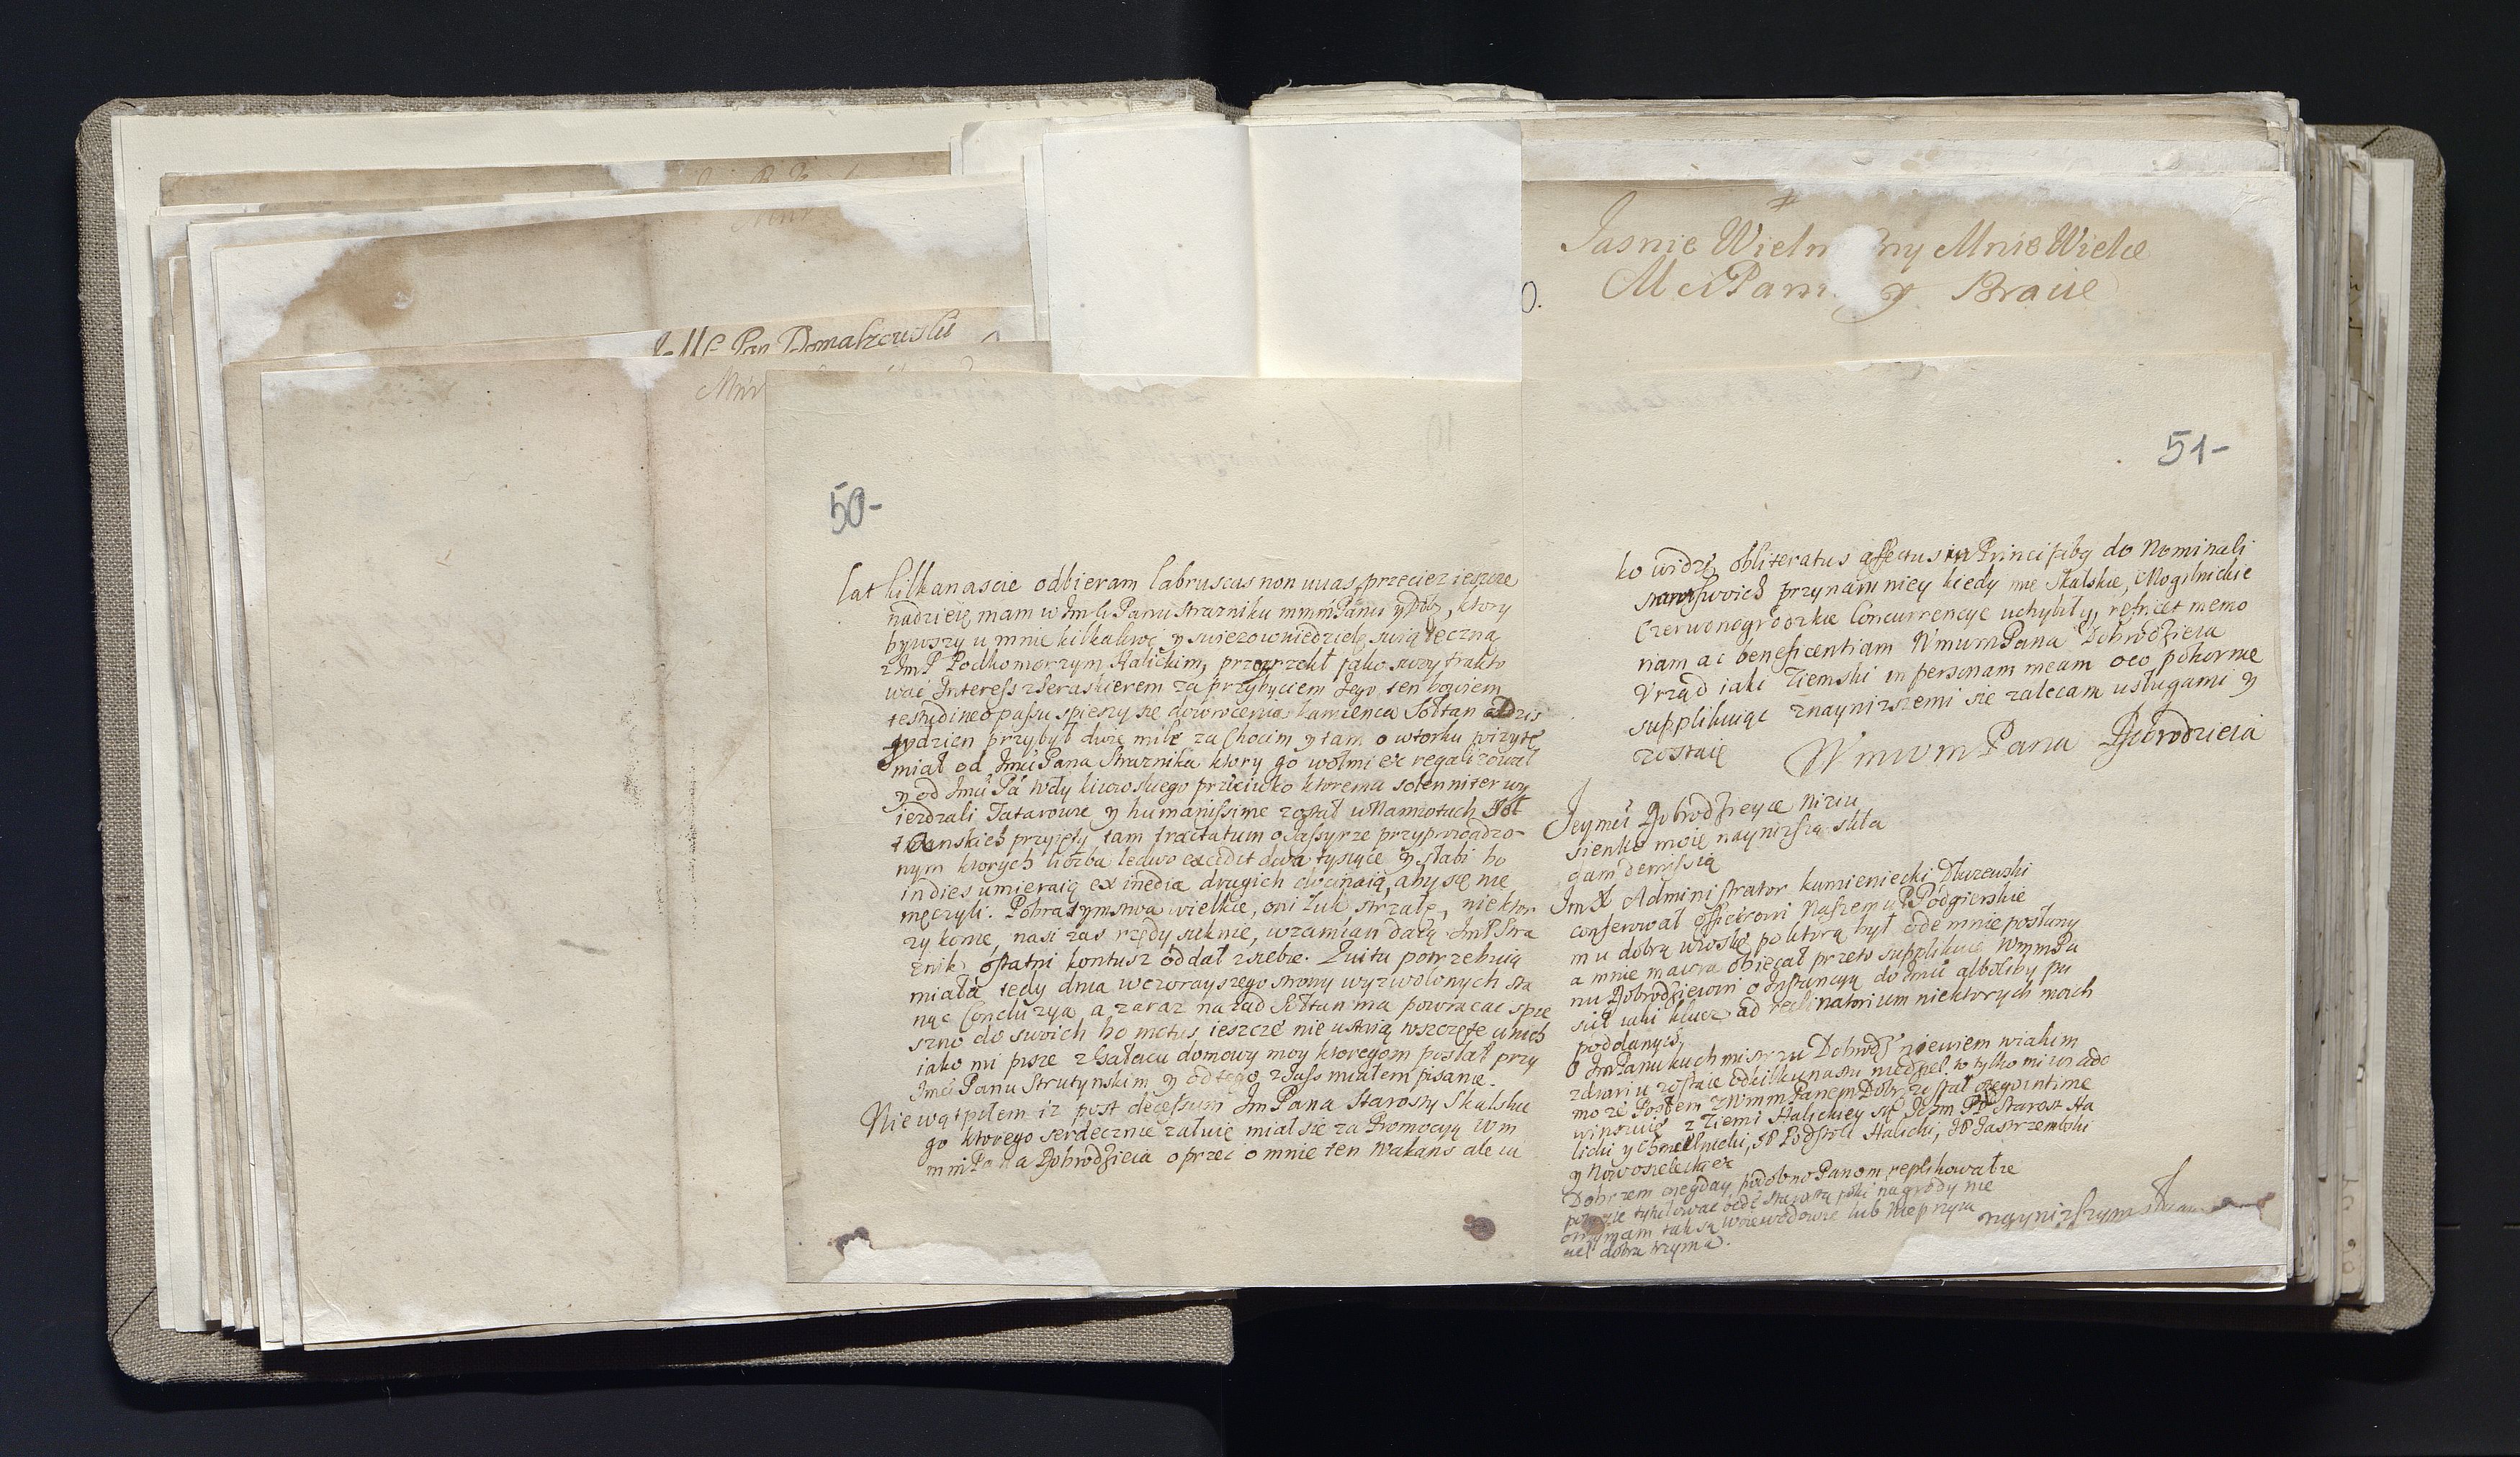 JMć Pan Domaszewski
50-
lat kilkanascie odbieram labruscas non uuas, przeciez ieszcze
nadzieię mam w Jmći Panu strazniku mmmPanu y Dob, ktory
bywszy u mnie kilkakroć y swiezo w niedzielę swiąteczną
z Jm P Podkomorzym Halickim, przyrzekł jako swoy trakto
wać Interess z Seraskierem za przybyciem Jego, ten bowiem
testudineo passu spieszy się do wrocenia Kamienca Sołtan
tydzien przybył dwie mile za Chocim y tam o wtorku wizytę
miał od Jmci Pana Straznika ktory go wołmi etc regalizował
y od Jmci Pa Wdy kiiowskiego przeciwko ktorema solenniter wy
iezdzali Tatarowie y humanissime został w Namiotach Soł
tanskich przyięty tam tractatum o Jassyrze przyprowadzo-
nym ktorych liczba ledwo excedit dwa tysiące y słabi bo
indies umieraią ex inedia drugich docinaią, aby się nie
męczyli. Pobratymstwa wielkie, oni łuk strzałę, niektor
zy konie, nasi zas rzędy suknie, w zamian daią Jm P Stra
znik ostatni kontusz oddał z siebie. Zuitu potrzebuią
miała tedy dnia wczorayszego strony wyzwolonych sta
nąc Concluzya, a zaraz nazad Sołtan ma powracac spie
szno do swoich bo metus ieszcze nie ustaią wszczęte u nich
iako mi pisze z Gałacu domowy moy ktoregom posłał przy
Jmci Panu Strutynskim y od tego z Jass miałem pisanie.
Nie wątpiłem iz post decessum Jm Pana Starosty Skalskie
go ktorego serdecznie załuię miał się za Promocyą Wm
mm Pana Dobrodzieia oprzec o mnie ten Wakans ale ia
Jasnie Wielm ny Mnie Wielce
Mci Pan y Bracie
51-
ko widzę obliteratus affectus in Principibg do Nominali
przynamniey kiedy mie Skalskie, Mogilnickie
Czerwonogrodzkie Concurrencye uchybiły, refricet memo
riam ac beneficentiam WmmmPana Dobrodzieia
Vrząd iaki Ziemski in personam meam oco pokornie
supplikuiąc z naynizszemi się zalecam usługami y
zostaię WmmmPana Dobrodzieia
Jeymci Dobrodzieyce niziu
sienko moię naynizszą skła
dam demissią
Jm X Administrator kamieniecki Dłuzewski
conferował Naszemu Podgierskie
mu dobrą wioskę po ktorą był odemnie posłany
a mnie obiecał przeto supplikuię WmmPa
nu Dobrodzieiowi o Instancyą do Jmci alboliby pu
scił iaki klucz ad reclinatorium niektorych moich
poddanych,
O Jm Panu kuchmistrzu Dobrodz niewiem wiakim
zdrowiu zostaie od kilkunastu niedziel, to tylko mi wiado
mo ze Posłem z Wmm Panem Dobr został czego intime
winszuię z Ziemi Halickiey są Ichm PP Starost Ha
licki y Chmelnicki, JP Podstoli Halicki, JP Jastrzembski
y Nowosielecki etc
Dobrzem niegday podobno Panom replikował ze
tytułowac będę starostą poki nagrody nie
otrzymam tak są woiewodowie lub nie przyia
ciel dobra trzyma.
naynizszym sługą